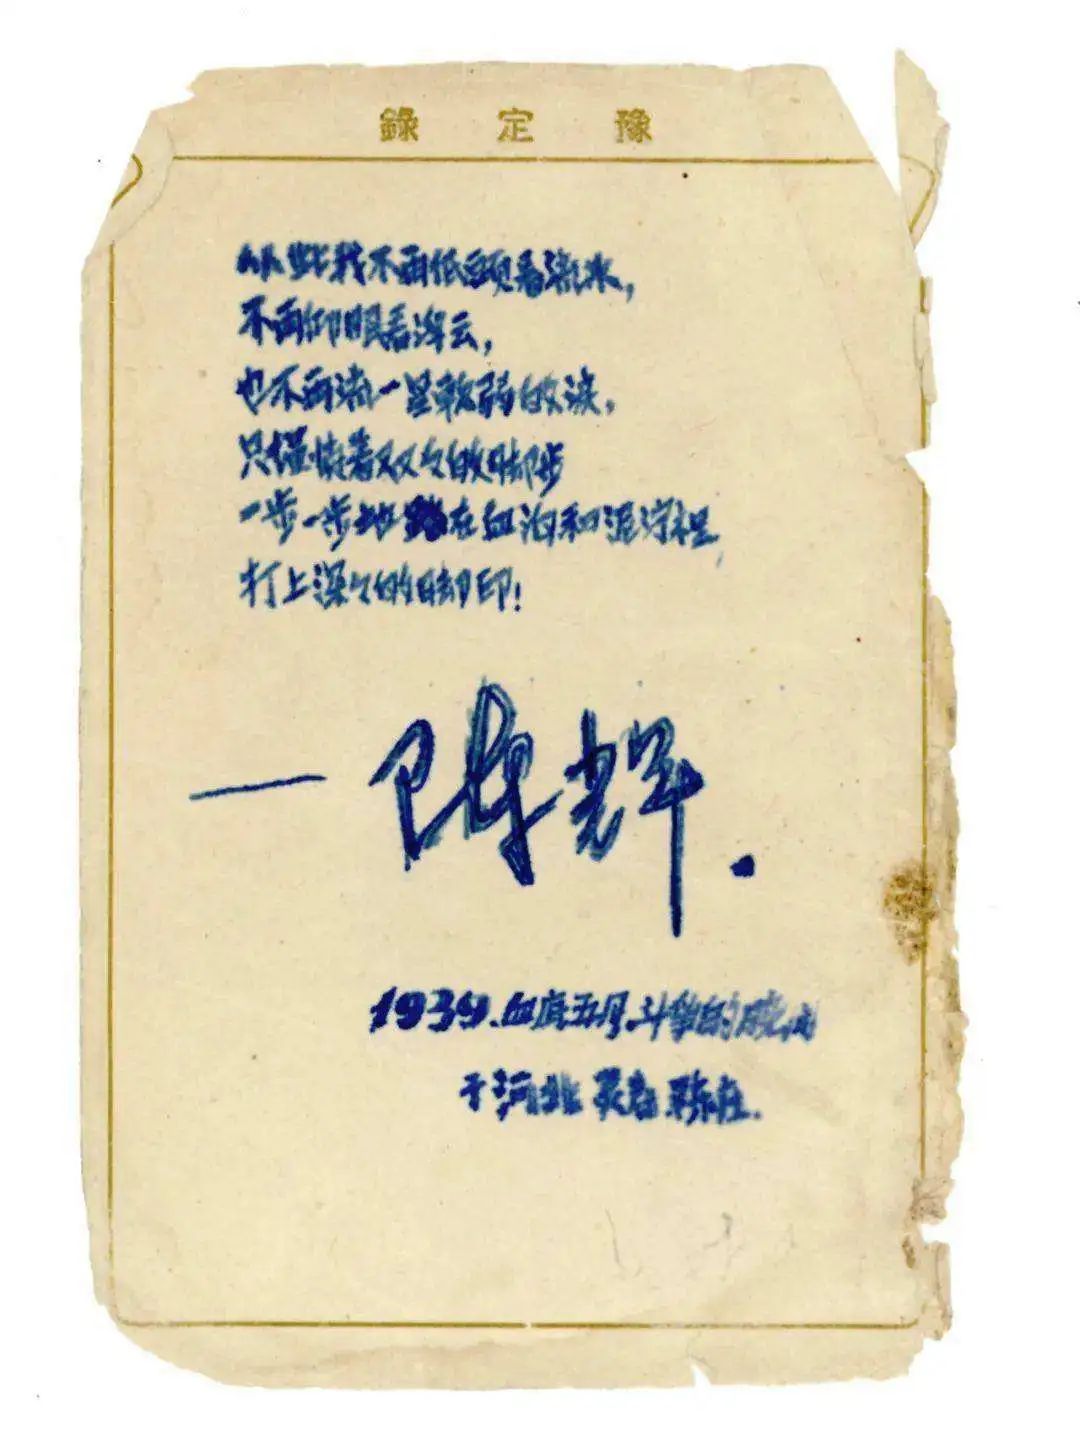 豫定錄
从此我不再低頭看流水，
不再仰眼看浮云，
也不再流一星軟弱的淚，
只僅恃着双々的脚步
一步一步地踏在血泊和泥泞裡，
打上深々的脚印！
— 陳輝.
1939.血底五月.斗爭的
于河北灵寿陈庄.